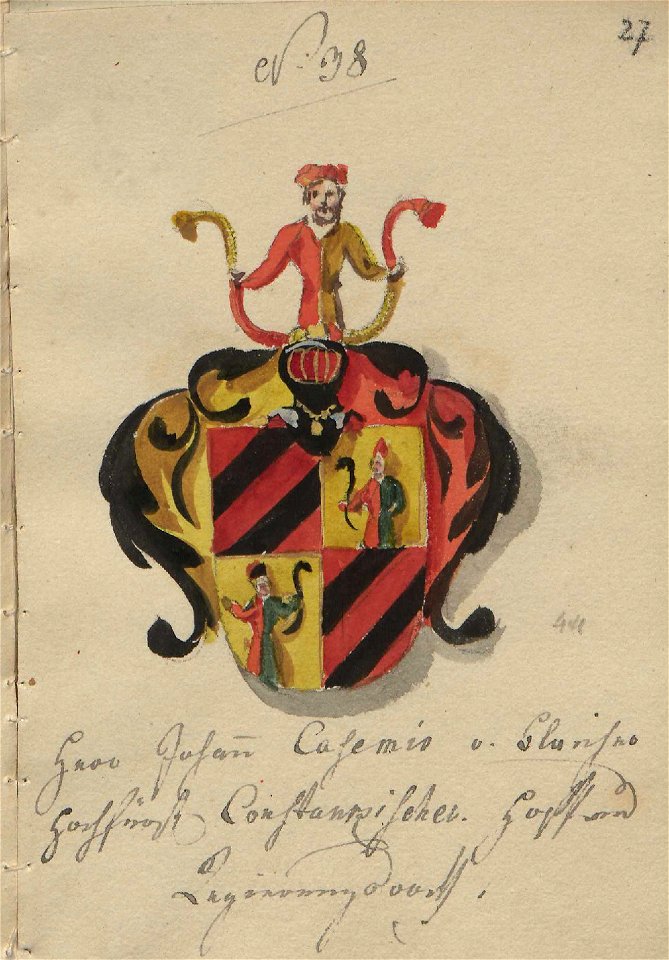 27
No. 38
44
Herr Johann Casemir v.
Hochfürst Constanzischer. Hoff und
Regierungsrath.